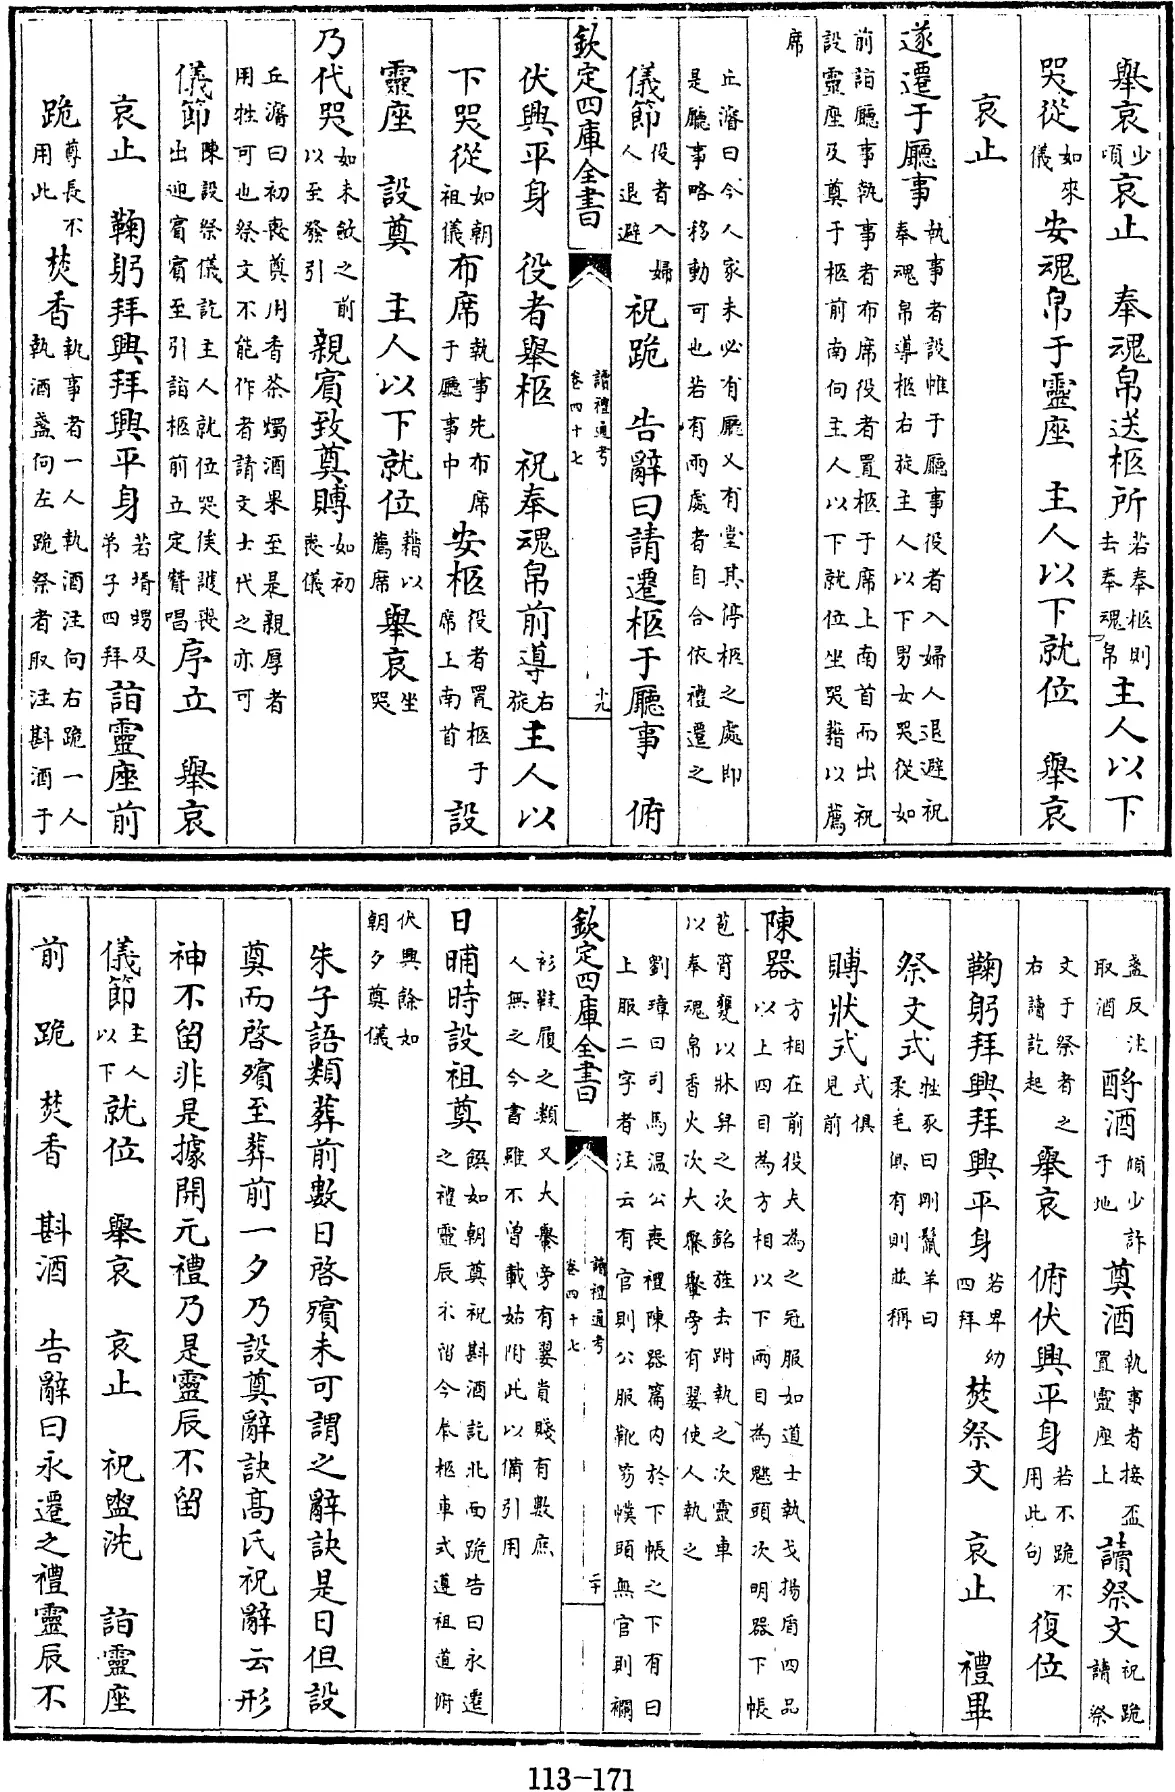 舉哀少頃哀止　奉魂帛送柩所若奉柩則去奉魂帛主人以下
哭從如來儀安魂帛于靈座　主人以下就位　舉哀
哀止
遂遷于廳事執事者設帷于廳事役者入婦人退避祝奉魂帛導柩右旋主人以下男女哭從如
前詣廳事執事者布席役者置柩于席上南首而出祝設靈座及奠于柩前南向主人以下就位坐哭藉以薦
席
丘濬曰今人家未必有廳又有堂其停柩之處即是廳事略移動可也若有兩處者自合依禮遷之
儀節役者入婦人退避祝跪　告辭曰請遷柩于廳事　俯
欽定四庫全書　讀禮通考卷四十七　十九
伏興平身　役者舉柩　祝奉魂帛前導右旋主人以
下哭從如朝祖儀布席執事先布席于廳事中安柩役者置柩于席上南首設
靈座　設奠　主人以下就位藉以薦席舉哀坐哭
乃代哭如未斂之前以至發引親賓致奠賻如初喪儀
丘濬曰初喪奠用香茶燭酒果至是親厚者用牲可也祭文不能作者請文士代之亦可
儀節陳設祭儀訖主人就位哭俟護喪出迎賓賓至引詣柩前立定贊唱序立　舉哀
哀止　鞠躬拜興拜興平身若壻甥及弟子四拜詣靈座前
跪尊長不用此焚香執事者一人執酒注向右跪一人執酒盞向左跪祭者取注斟酒于
盞反注取酒酹酒傾少許于地奠酒執事者接盃置靈座上讀祭文祝跪讀祭
文于祭者之右讀訖起舉哀　俯伏興平身若不跪不用此句復位
鞠躬拜興拜興平身若卑幼四拜焚祭文　哀止　禮畢
祭文式牲豕曰剛鬣羊曰柔毛俱有則並稱
賻狀式式俱見前
陳器方相在前役夫為之冠服如道士執戈揚盾四品以上四目為方相以下兩目為魌頭次明器下帳
苞筲甖以牀舁之次銘旌去跗執之次靈車以奉魂帛香火次大轝轝旁有翣使人執之
劉璋曰司馬温公喪禮陳器篇内於下帳之下有曰上服二字者注云有官則公服靴笏幞頭無官則襴
欽定四庫全書　讀禮通考卷四十七　二十
衫鞋履之類又大轝旁有翣貴賤有數庶人無之今書雖不曾載姑附此以備引用
日晡時設祖奠饌如朝奠祝斟酒訖北面跪告曰永遷之禮靈辰不留今奉柩車式遵祖道俯
伏興餘如朝夕奠儀
朱子語類葬前數日啓殯未可謂之辭訣是日但設
奠而啓殯至葬前一夕乃設奠辭訣高氏祝辭云形
神不留非是據開元禮乃是靈辰不留
儀節主人以下就位　舉哀　哀止　祝盥洗　詣靈座
前　跪　焚香　斟酒　告辭曰永遷之禮靈辰不
113-171